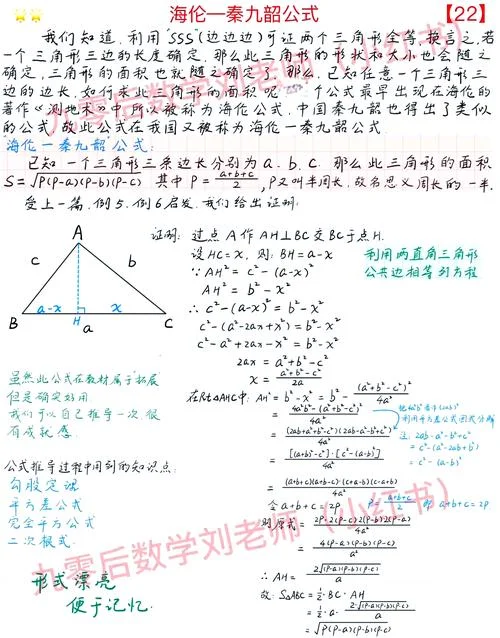 海伦—秦九韶公式 【22】
我们知道,利用"SSS"(边边边)可证两个三角形全等,换言之,若
一个三角形三边的长度确定,那么此三角形的形状和大小也会随之
确定,三角形的面积也就随之确定了。那么,已知任意一个三角形三
边的边长,如何求三角形的面积呢 个公式最早出现在海伦的
著作《测地术》中,所以被称为海伦公式,中国秦九韶也得出了类似
的公式,故此公式在我国又被称为海伦一秦九韶公式
海伦一秦九韶公式:
已知一个三角形三条边长分别为a、b、c,那么此三角形的面积
S=√P(P-a)(P-b)(P-c) 其中P=(a+b+c)/2,P又叫半周长,故名思义周长的一半.
受上一篇,例5、例6启发,我们给出证明:
A
c
b
a-x
x
B
H
a
C
证明:过点A作AH⊥BC交BC于点H.
设HC=x,则:BH=a-x
∵AH²=c²-(a-x)²
AH²=b²-x²
∴c²-(a-x)²=b²-x²
c²-(a²-2ax+x²)=b²-x²
c²-a²+2ax-x²=b²-x²
2ax=a²+b²-c²
x=(a²+b²-c²)/2a
利用两直角三角形
公共边相等列方程
在Rt△AHC中:AH²=b²-x²=b²-(a²+b²-c²)²/4a²
=(4a²b²-(a²+b²-c²)²)/4a²
=(2ab+a²+b²-c²)(2ab-a²-b²+c²)/4a²
=[(a+b)²-c²]·[c²-(a-b)²]/4a²
=(a+b+c)(a+b-c)·(c+a-b)(c-a+b)/4a²
把4a²b²看作(2ab)²
利用平方差公式因式分解
注:2ab-a²-b²+c²
=c²-(a²-2ab+b²)
=c²-(a-b)²
令a+b+c=2P P=(a+b+c)/2 即 a+b+c=2P
则原式=2P·2(P-c)2(P-b)2(P-a)/4a²
=4(P-a)(P-b)(P-c)/a²
∴AH=2√(P-a)(P-b)(P-c)/a
故:S△ABC=½·BC·AH
=½·a·2√(P-a)(P-b)(P-c)/a
=√P(P-a)(P-b)(P-c)
虽然此公式在教材属于拓展
但是确实好用.
我们可以自己推导一次很
有成就感.
公式推导过程中用到的知识点:
勾股定理
平方差公式
完全平方公式
二次根式
形式漂亮
便于记忆.
九零后数学刘老师(小红书)
九零后数学刘老师(小红书)